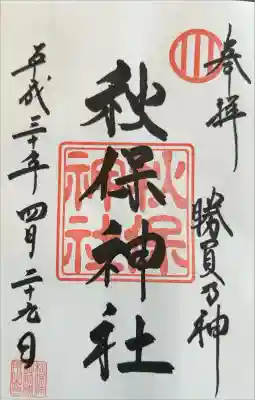 奉拝
勝負乃神
秋保神社
秋保神社
平成三十年四月二十九日